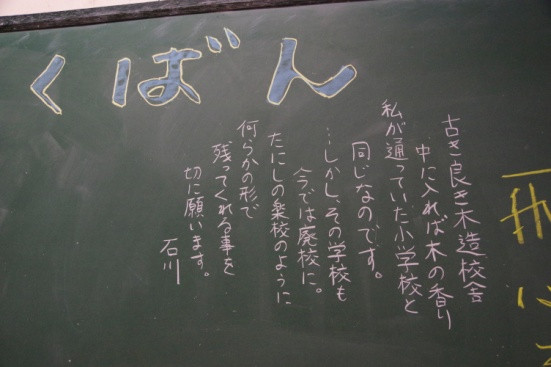 くばん
古き良き木造校舎
中に入れば木の香り
私が通っていた小学校と
同じなのです。
…しかし、その学校も
今では廃校に。
たにしの楽校のように
何らかの形で
残ってくれる事を
切に願います。
石川